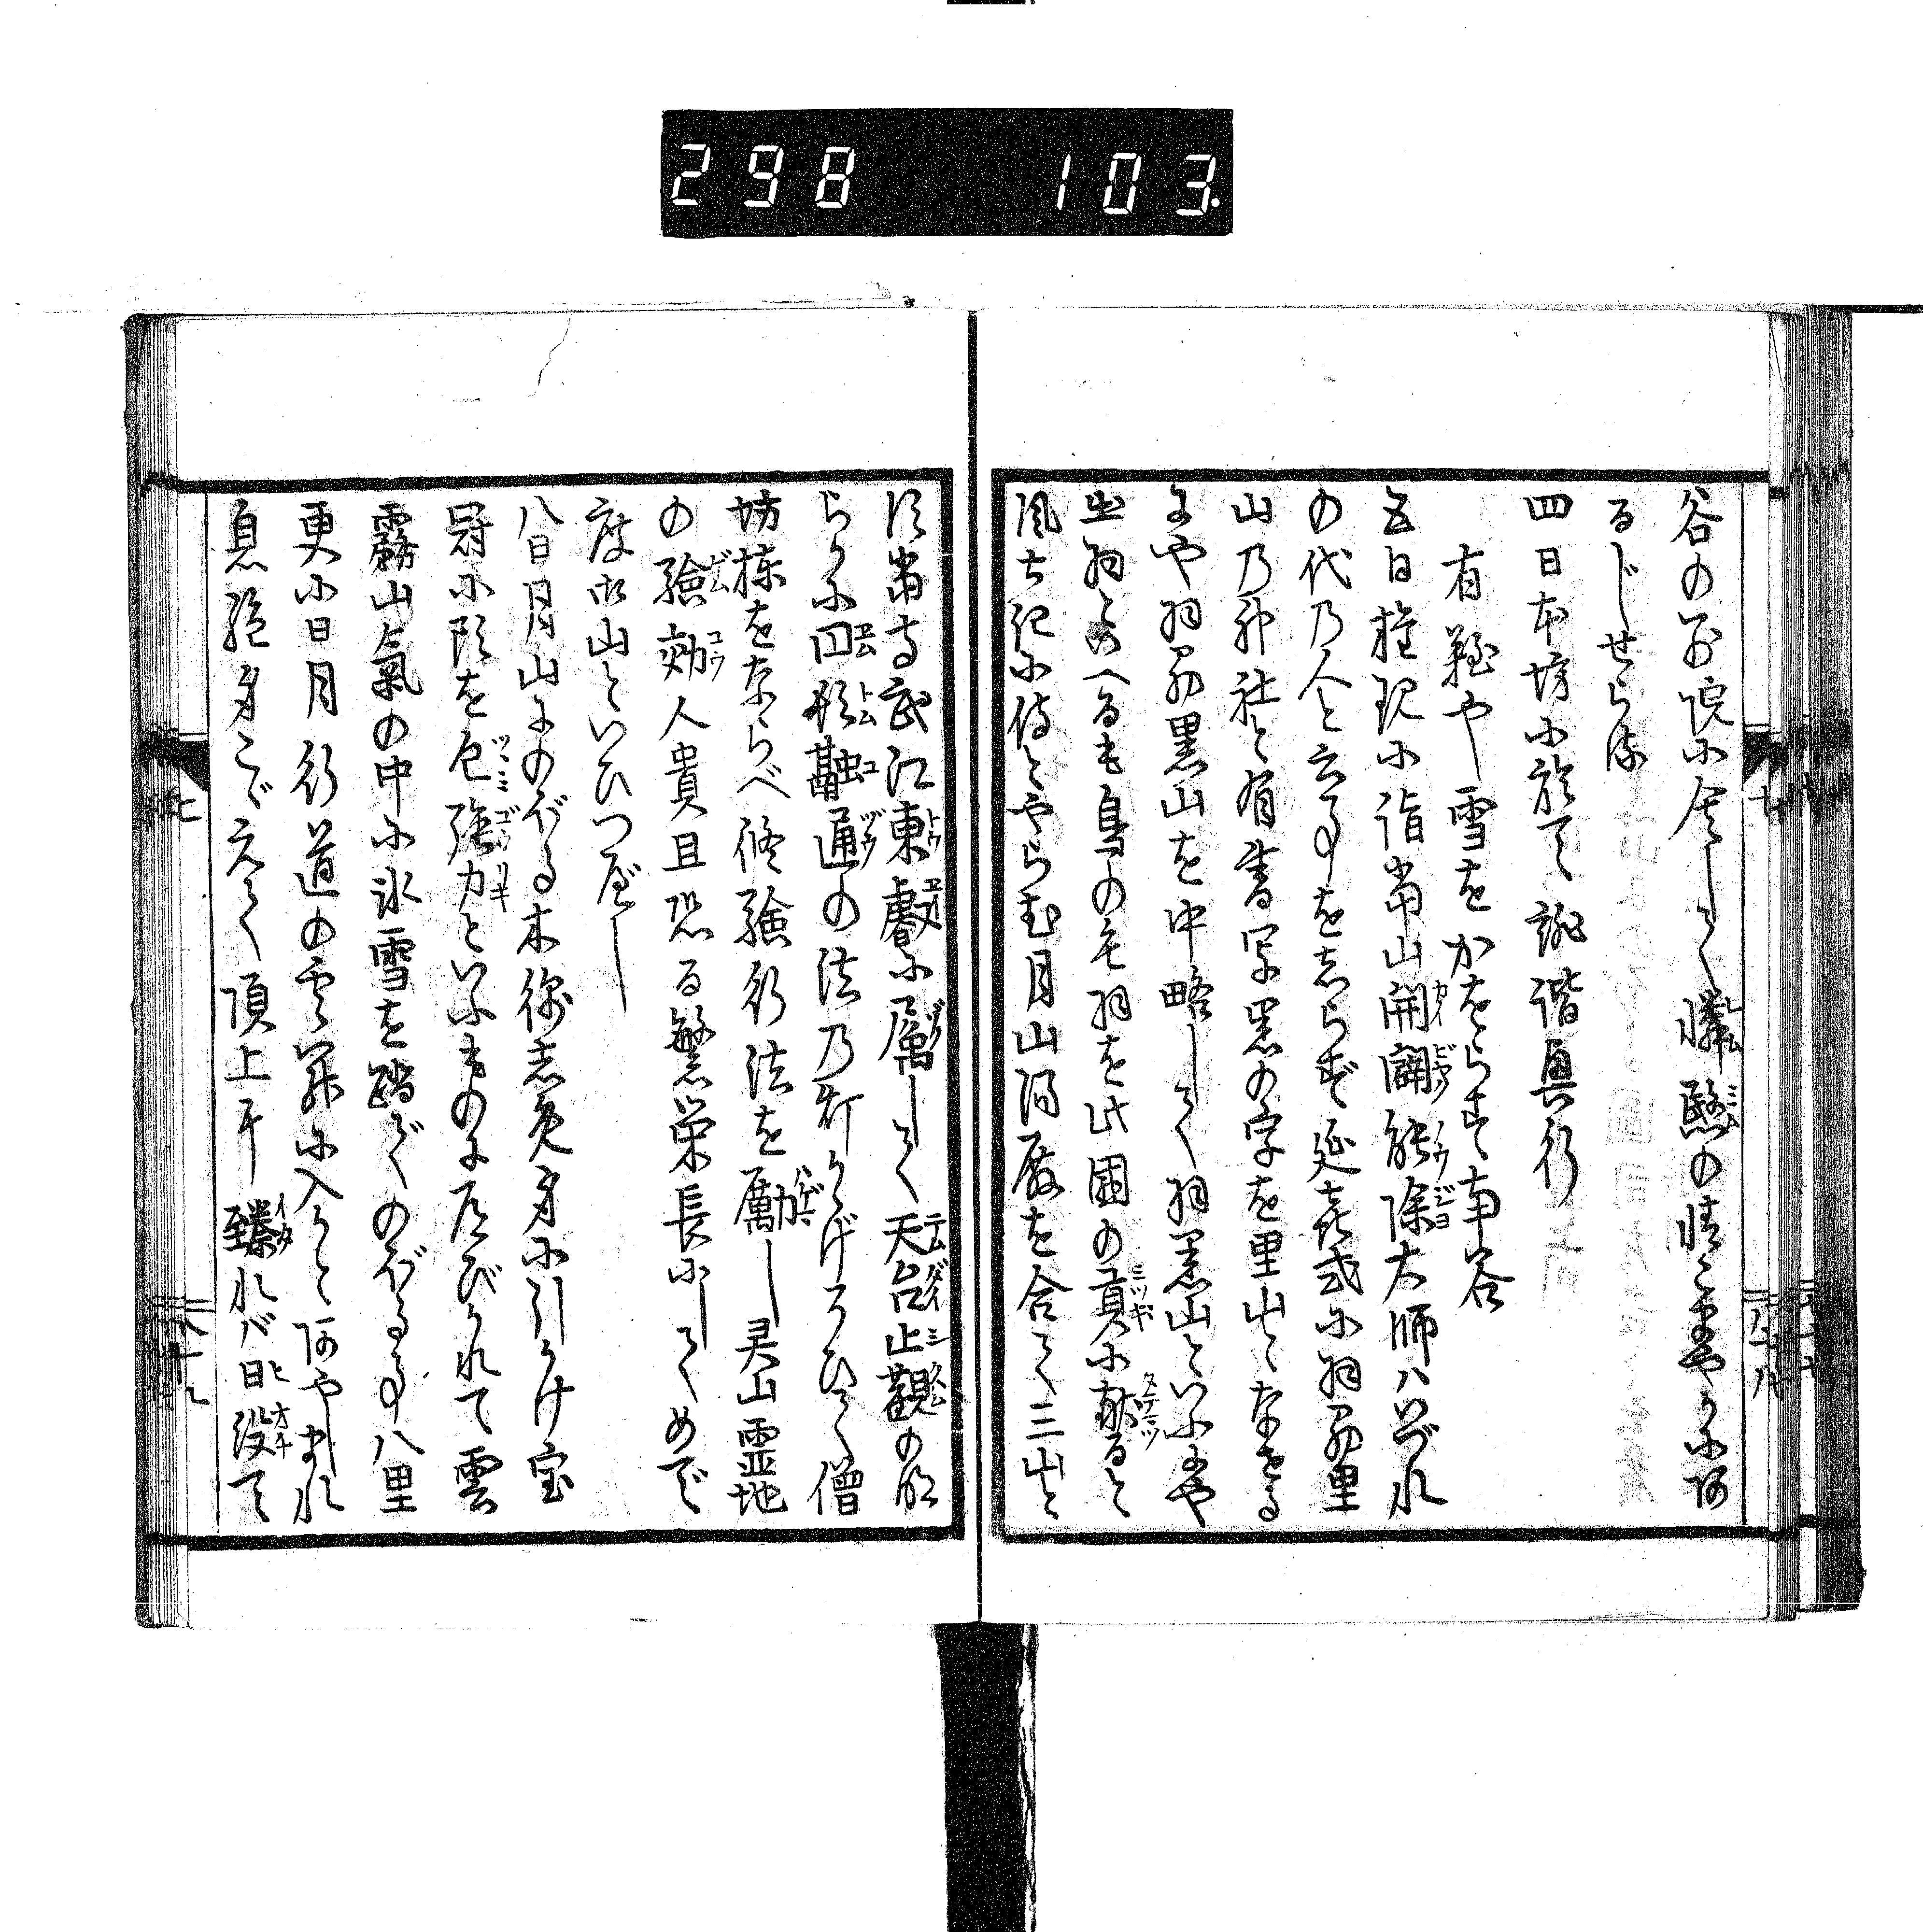 298 103.
谷の別院に舎して憐愍の情こまやかにあ
るじせらる
四日本坊に於て誹諧興行
有難や雪をかほらす南谷
五日権現に詣当山開闢能除大師ハいづれ
の代の人と云事をしらず延喜式に羽州里
山の神社と有書写黒の字を里山となせる
にや羽州黒山を中略して羽黒山といふにや
出羽といへるも鳥の毛羽を此国の貢に献ると
風土記に侍とやらむ月山湯殿を合て三山と
す当寺武江東叡に属して天台止観の明
らかに円頓融通の法の灯かゝげそひて僧
坊棟をならべ修験行法を励し灵山霊地
の験効人貴且恐る繁栄長にしてめで
度御山といひつべし
八日月山にのぼる木綿しめ身に引かけ宝
冠に頭を包強力といふものに道びかれて雲
霧山氣の中に氷雪を踏でのぼる事八里
更に日月行道の雲関に入かとあやまれ
息絶身こゞえて頂上に臻れバ日没て